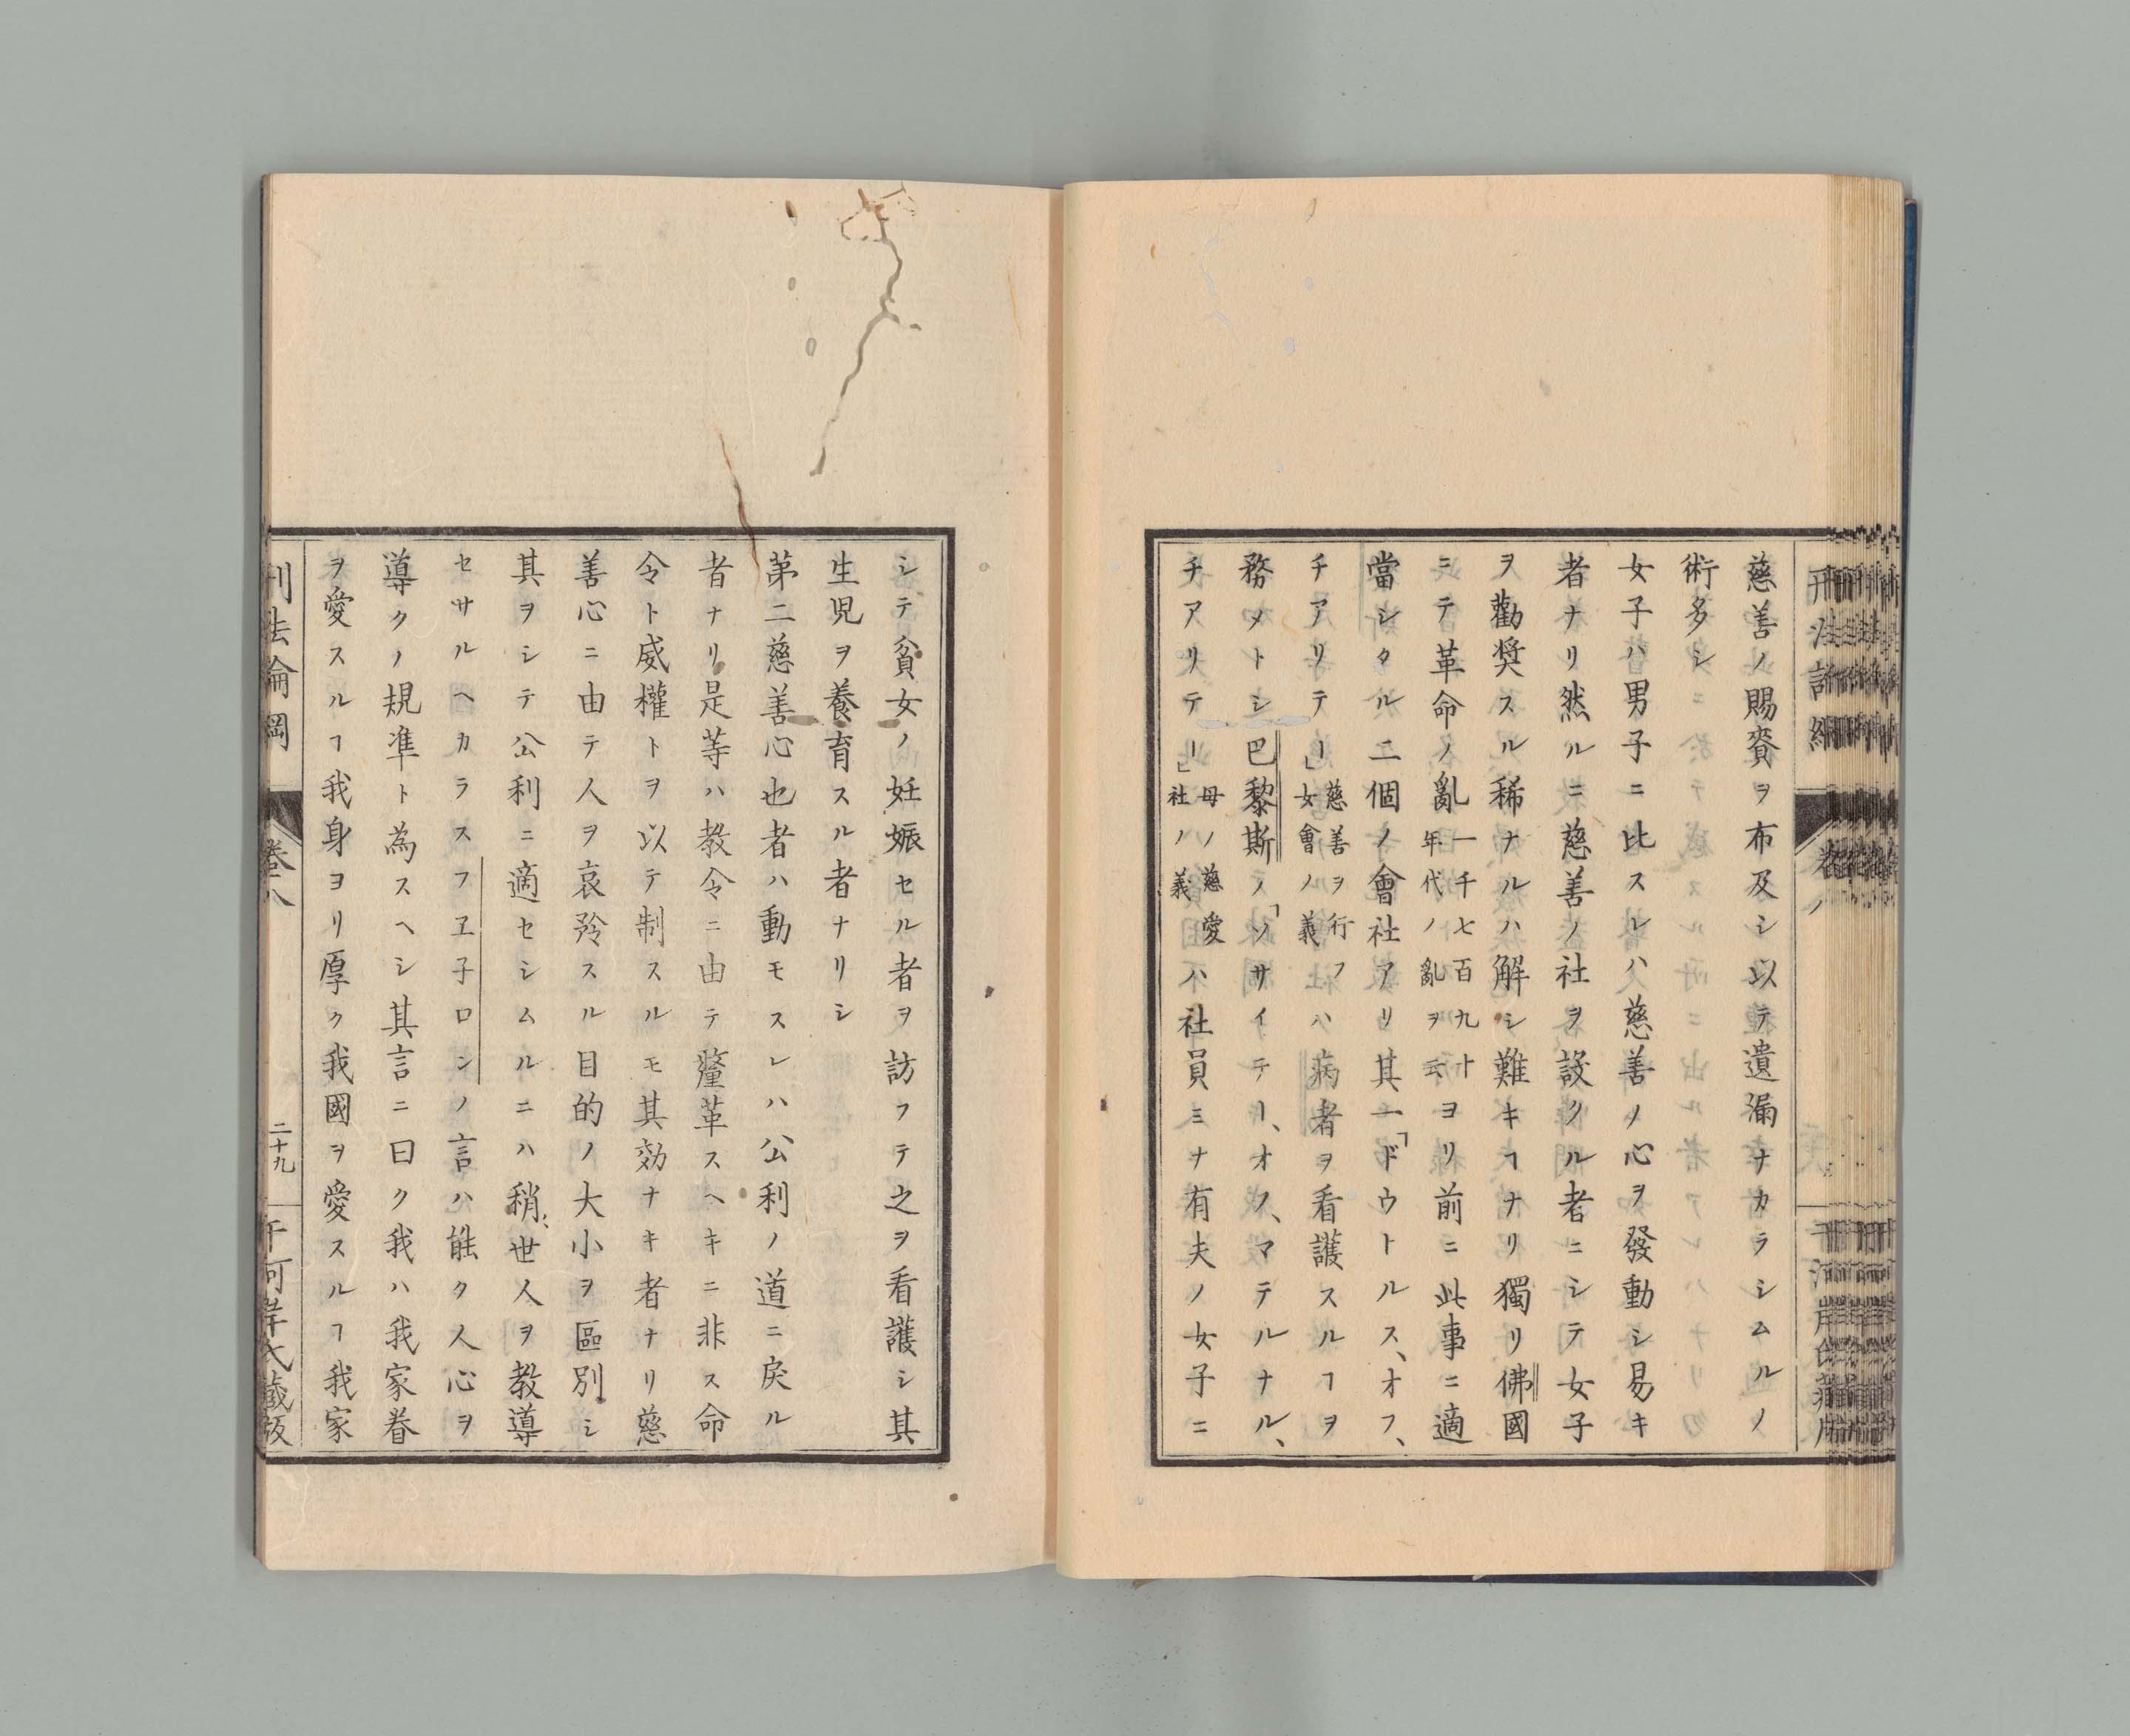 慈善ノ賜賚ヲ布及シ以テ遺漏ナカラシムルノ
術多シ
女子ハ男子ニ比スレハ慈善ノ心ヲ發動シ易キ
者ナリ然ルニ慈善ノ社ヲ設クル者ニシテ女子
ヲ勸奨スル稀ナルハ解シ難キヿナリ獨リ佛國
ニテ革命ノ亂一千七百九十年代ノ亂ヲ云ヨリ前ニ此事ニ適
當シタル二個ノ會社アリ其一「ドウトルス、オフ、
チアリテー」慈善ヲ行フ女會ノ義ハ病者ヲ看護スルヿヲ
務メトシ巴黎斯ノ「ソサイテー、オフ、マテルナル、
チアリテー」母ノ慈愛社ノ義ハ社員ミナ有夫ノ女子ニ
シテ貧女ノ妊娠セル者ヲ訪フテ之ヲ看護シ其
生児ヲ養育スル者ナリシ
第二慈善心也者ハ動モスレハ公利ノ道ニ戻ル
者ナリ是等ハ教令ニ由テ釐革スヘキニ非ス命
令ト威權トヲ以テ制スルモ其効ナキ者ナリ慈
善心ニ由テ人ヲ哀矜スル目的ノ大小ヲ區別シ
其ヲシテ公利ニ適セシムルニハ稍〻世人ヲ教導
セサルヘカラスフヱ子ロンノ言ハ能ク人心ヲ
導クノ規準ト為スヘシ其言ニ曰ク我ハ我家眷
ヲ愛スルヿ我身ヨリ厚ク我國ヲ愛スルヿ我家
刑法論綱
卷八
二十九
千河岸氏藏版